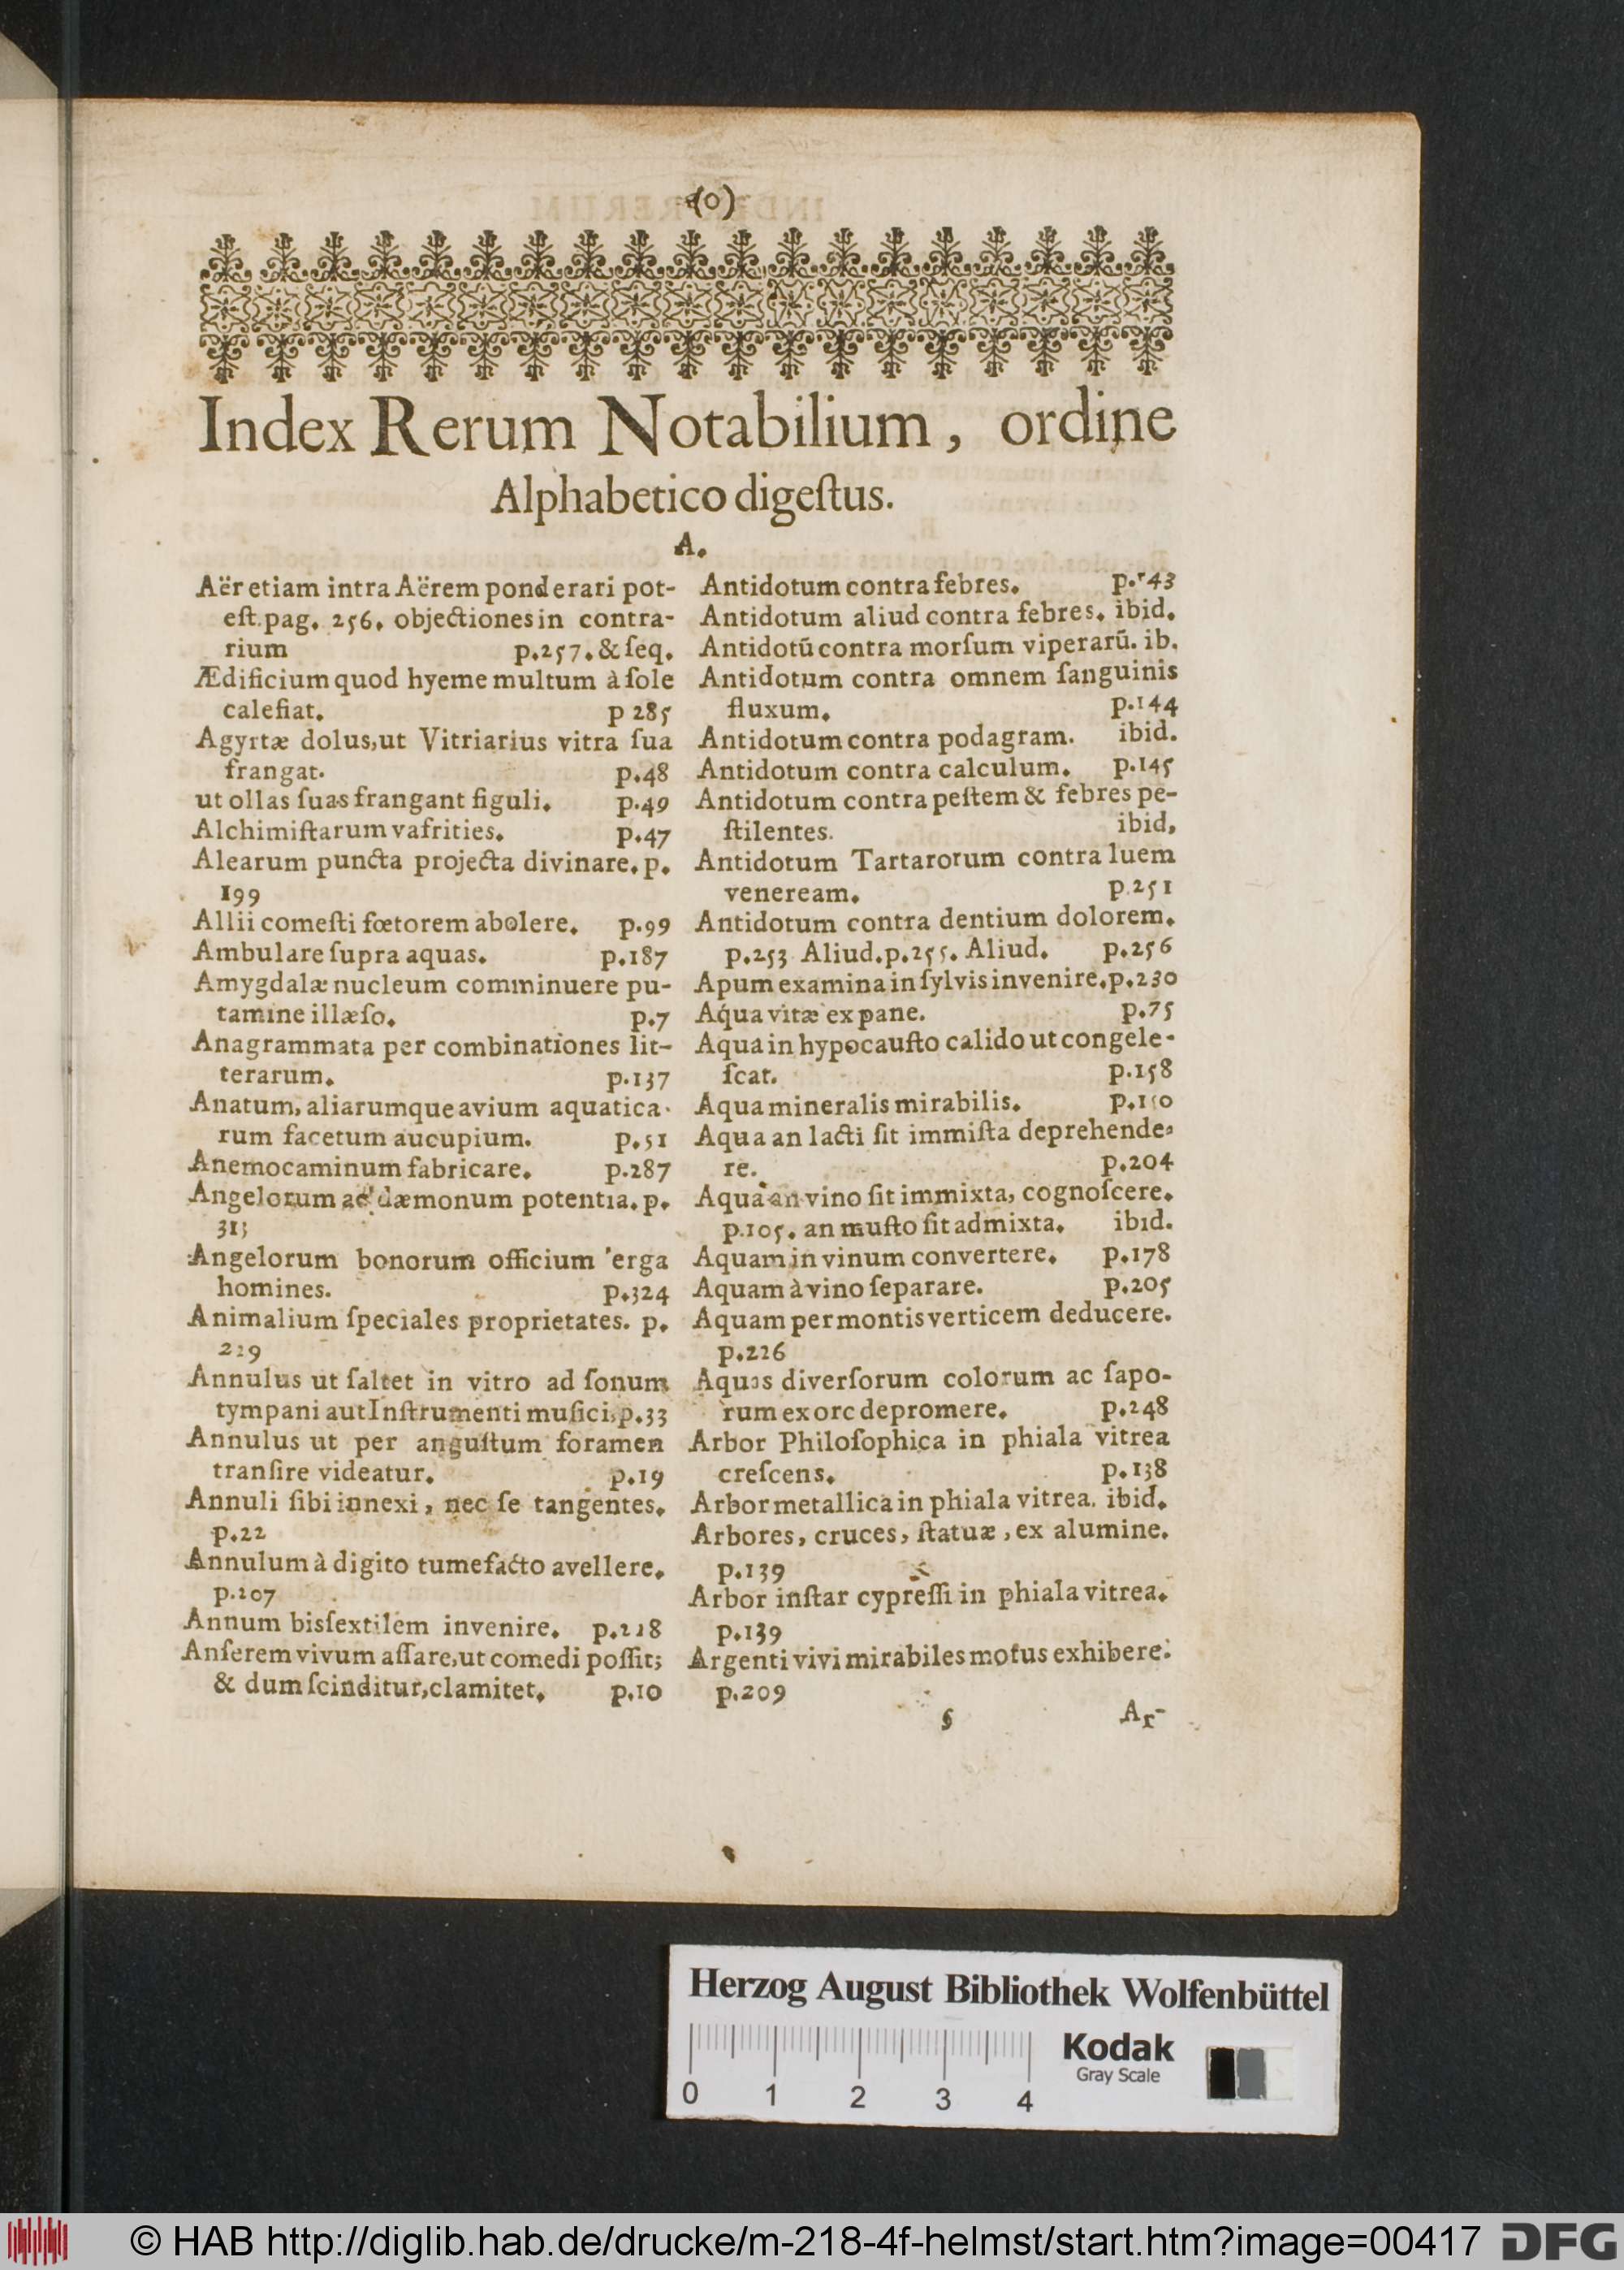 (0)
Index Rerum Notabilium, ordine
Alphabetico digeſtus.
A.
Aër etiam intra Aërem ponderari pot-
eſt. pag. 256. objectiones in contra-
rium p.257. & ſeq.
Ædificium quod hyeme multum à ſole
calefiat. p 285
Agyrtæ dolus, ut Vitriarius vitra ſua
frangat. p.48
ut ollas ſuas frangant figuli. p.49
Alchimiſtarum vafrities. p.47
Alearum puncta projecta divinare. p.
199
Allii comeſti fœtorem abolere. p.99
Ambulare ſupra aquas. p.187
Amygdalæ nucleum comminuere pu-
tamine illæſo. p.7
Anagrammata per combinationes lit-
terarum. p.137
Anatum, aliarumque avium aquatica-
rum facetum aucupium. p.51
Anemocaminum fabricare. p.287
Angelorum ac dæmonum potentia. p.
313
Angelorum bonorum officium erga
homines. p.324
Animalium ſpeciales proprietates. p.
229
Annulus ut ſaltet in vitro ad ſonum
tympani aut Inſtrumenti muſici, p.33
Annulus ut per anguſtum foramen
tranſire videatur. p.19
Annuli ſibi innexi, nec ſe tangentes.
p.22
Annulum à digito tumefacto avellere.
p.207
Annum bisſextilem invenire. p.218
Anſerem vivum aſſare, ut comedi poſſit;
& dum ſcinditur, clamitet. p.10
Antidotum contra febres. p.143
Antidotum aliud contra febres. ibid.
Antidotū contra morſum viperarū. ib.
Antidotum contra omnem ſanguinis
fluxum. p.144
Antidotum contra podagram. ibid.
Antidotum contra calculum. p.145
Antidotum contra peſtem & febres pe-
ſtilentes. ibid.
Antidotum Tartarorum contra luem
veneream. p.251
Antidotum contra dentium dolorem.
p.253 Aliud. p.255. Aliud. p.256
Apum examina in ſylvis invenire. p.230
Aqua vitæ ex pane. p.75
Aqua in hypocauſto calido ut congele-
ſcat. p.158
Aqua mineralis mirabilis.
Aqua an lacti ſit immiſta deprehende-
re. p.204
Aqua an vino ſit immixta, cognoſcere.
p.105. an muſto ſit admixta. ibid.
Aquam in vinum convertere. p.178
Aquam à vino ſeparare. p.205
Aquam per montis verticem deducere.
p.226
Aquas diverſorum colorum ac ſapo-
rum ex orc depromere. p.248
Arbor Philoſophica in phiala vitrea
creſcens. p.138
Arbor metallica in phiala vitrea. ibid.
Arbores, cruces, ſtatuæ, ex alumine.
p.139
Arbor inſtar cypreſſi in phiala vitrea.
p.139
Argenti vivi mirabiles motus exhibere.
p.209
Ar-
Herzog August Bibliothek Wolfenbüttel
Kodak
Gray Scale
0 1 2 3 4
© HAB http://diglib.hab.de/drucke/m-218-4f-helmst/start.htm?image=00417 DFG